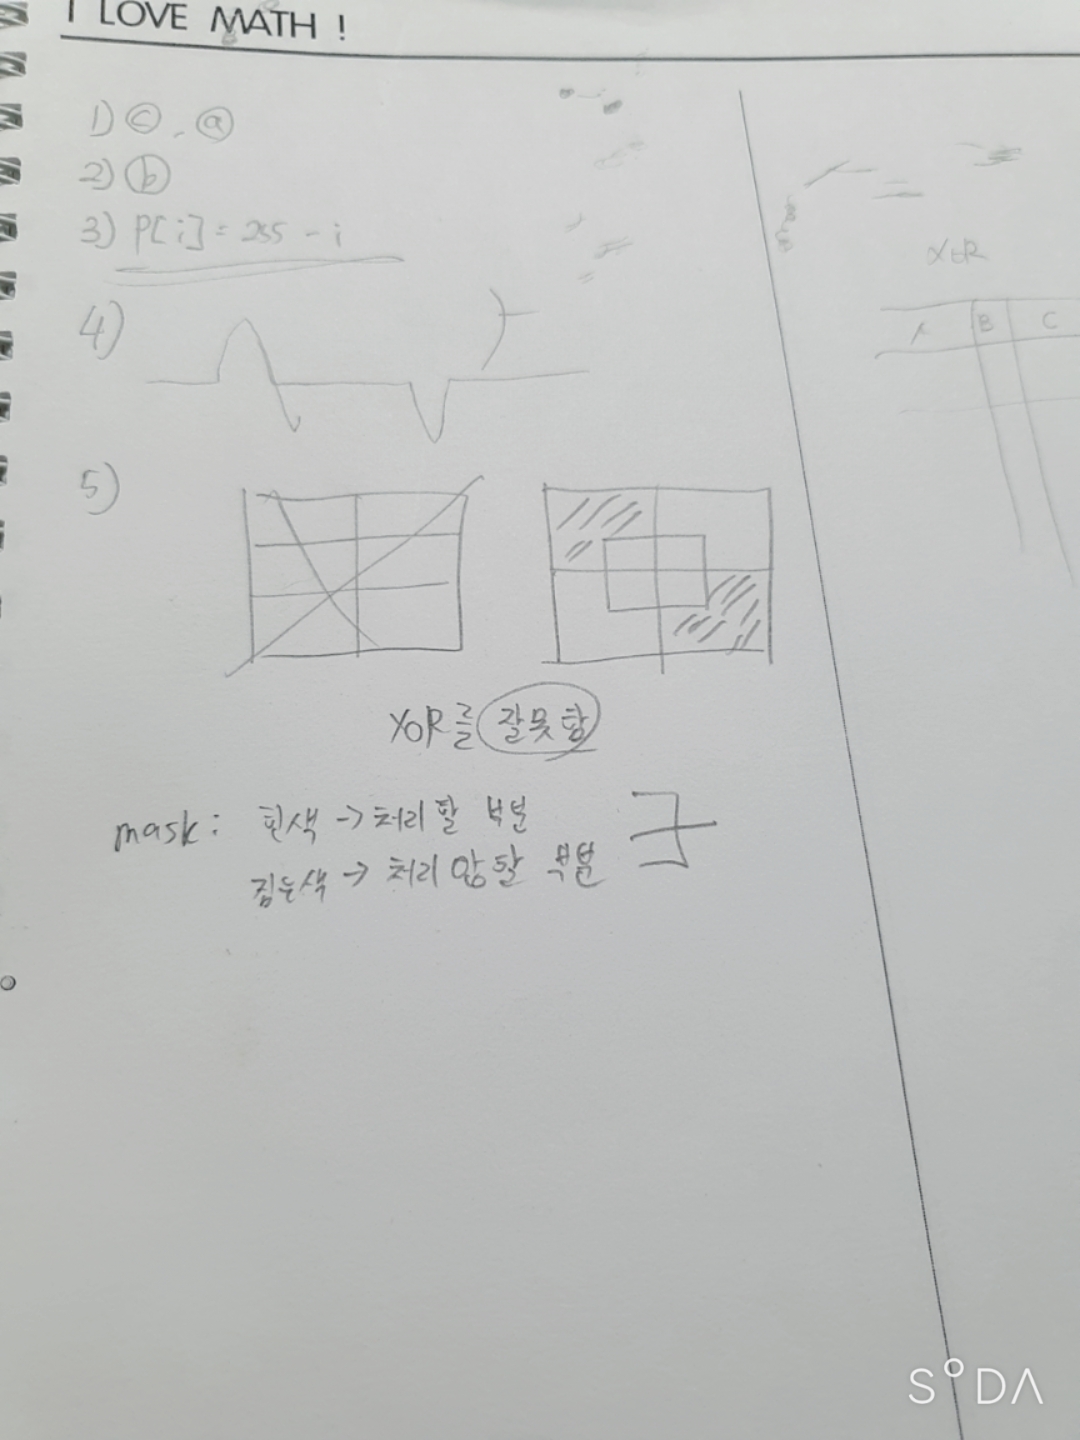 I LOVE MATH !
1) ⓒ, ⓐ
2) ⓑ
3) P[i] = 255 - i
4)
5)
XOR를 잘못함
mask: 흰색 → 처리할 부분
검은색 → 처리 안할 부분
XOR
A B C
SODA